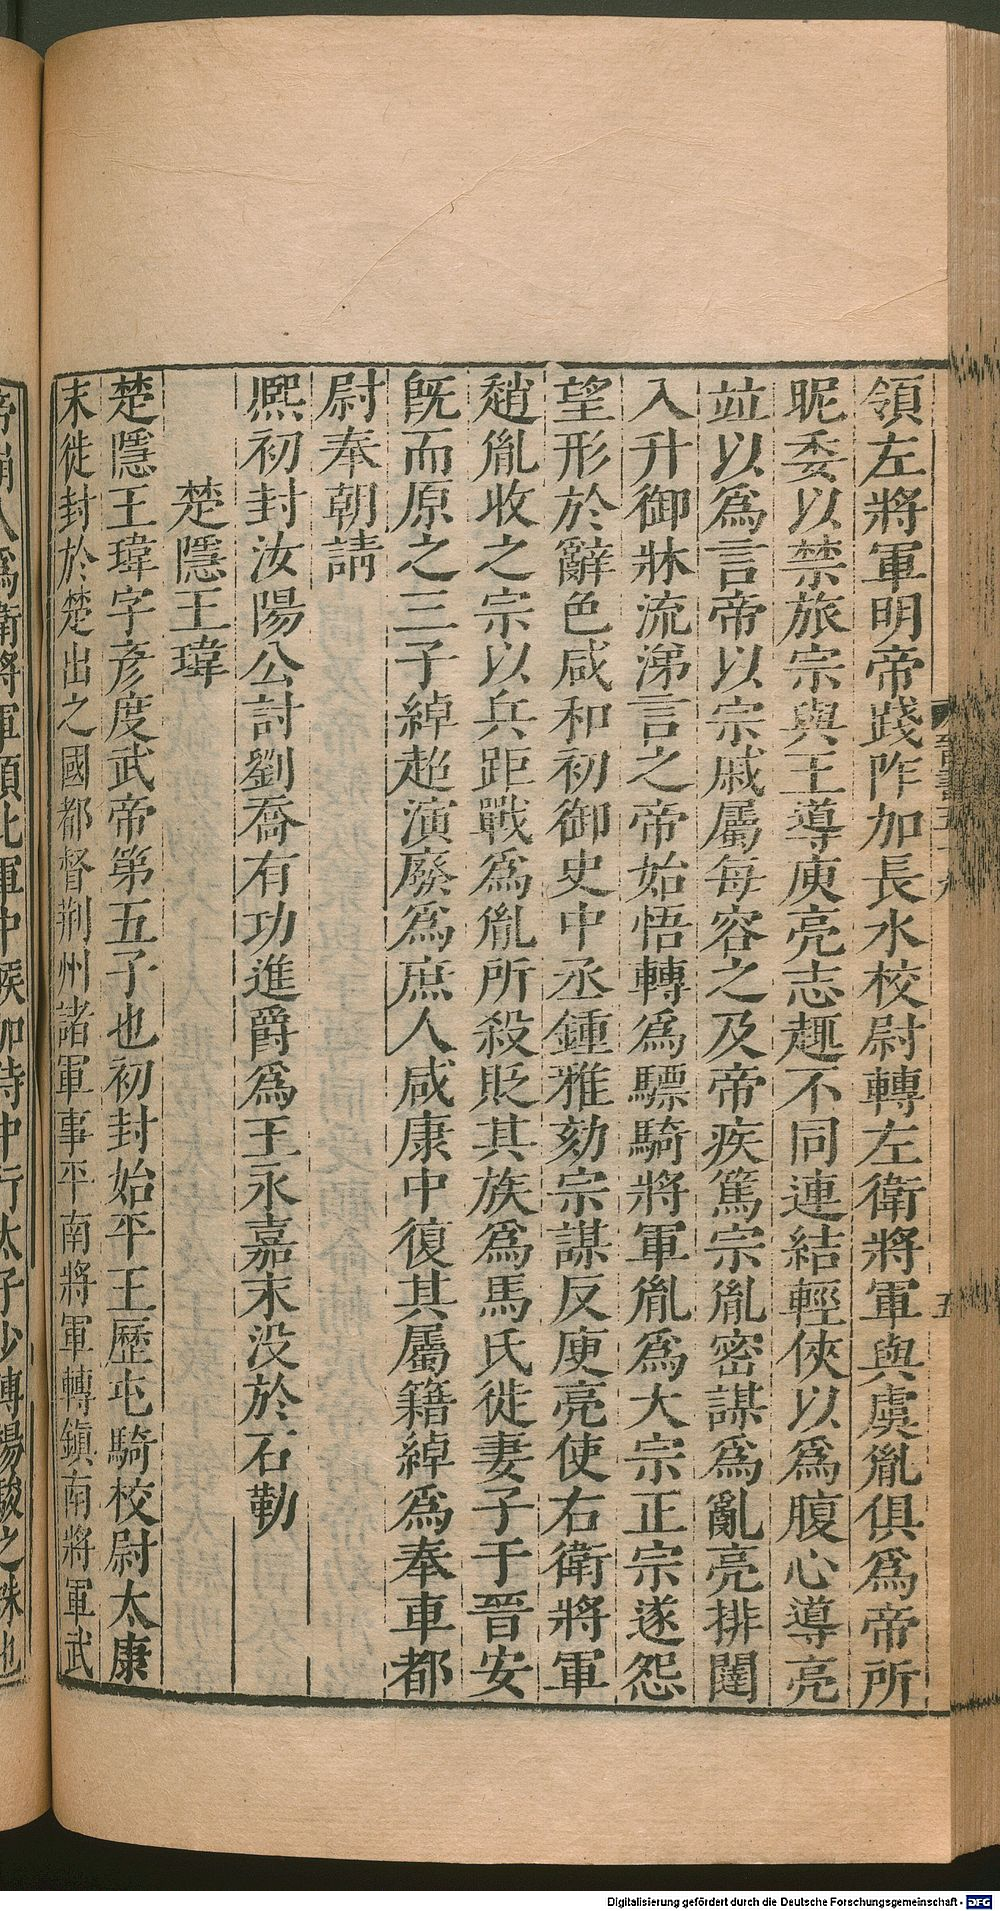 領左將軍明帝踐阼加長水校尉轉左衛將軍與虞胤俱爲帝所
昵委以禁旅宗與王導庾亮志趣不同連結輕俠以爲腹心導亮
並以爲言帝以宗戚屬每容之及帝疾篤宗胤密謀爲亂亮排闥
入升御牀流涕言之帝始悟轉爲驃騎將軍胤爲大宗正宗遂怨
望形於辭色咸和初御史中丞鍾雅劾宗謀反庾亮使右衛將軍
趙胤收之宗以兵距戰爲胤所殺貶其族爲馬氏徙妻子于晉安
旣而原之三子綽超演廢爲庶人咸康中復其屬籍綽爲奉車都
尉奉朝請
熙初封汝陽公討劉喬有功進爵爲王永嘉末没於石勒
楚隱王瑋
楚隱王瑋字彦度武帝第五子也初封始平王歷屯騎校尉太康
末徙封於楚出之國都督荆州諸軍事平南將軍轉鎮南將軍武
爲衛將軍領北軍中候加侍中行太子少傅楊駿之誅也
晉書五十九
五
Digitalisierung gefördert durch die Deutsche Forschungsgemeinschaft - DFG